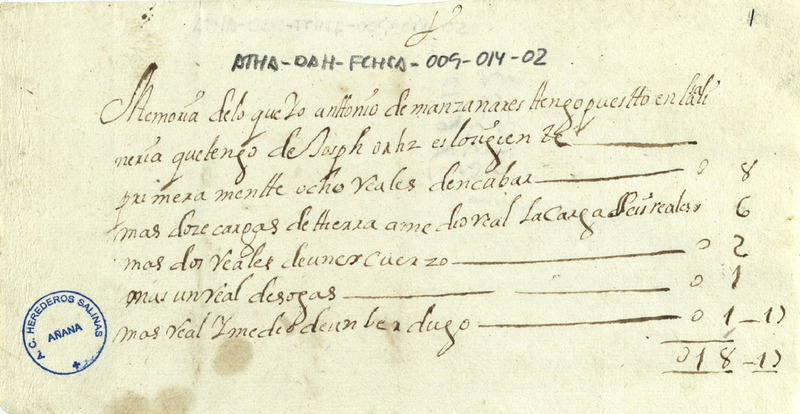 1
ATHA-DAH-FCHCA-009-014-02
Memoria delo que Yo anttonio de manzanares ttengo puestto en la
neria que tengo de Joseph ortiz es lo siguien
primera mentte ocho reales de ncabar 0 8
mas doze cargas de tierra a medio real la carga seis reales 6
mas dos reales de un ercuerzo 0 2
mas un real de sogas 0 1
mas real Y medio de un berdugo 0 1-1)
018-1)
A. C. HEREDEROS SALINAS
AÑANA